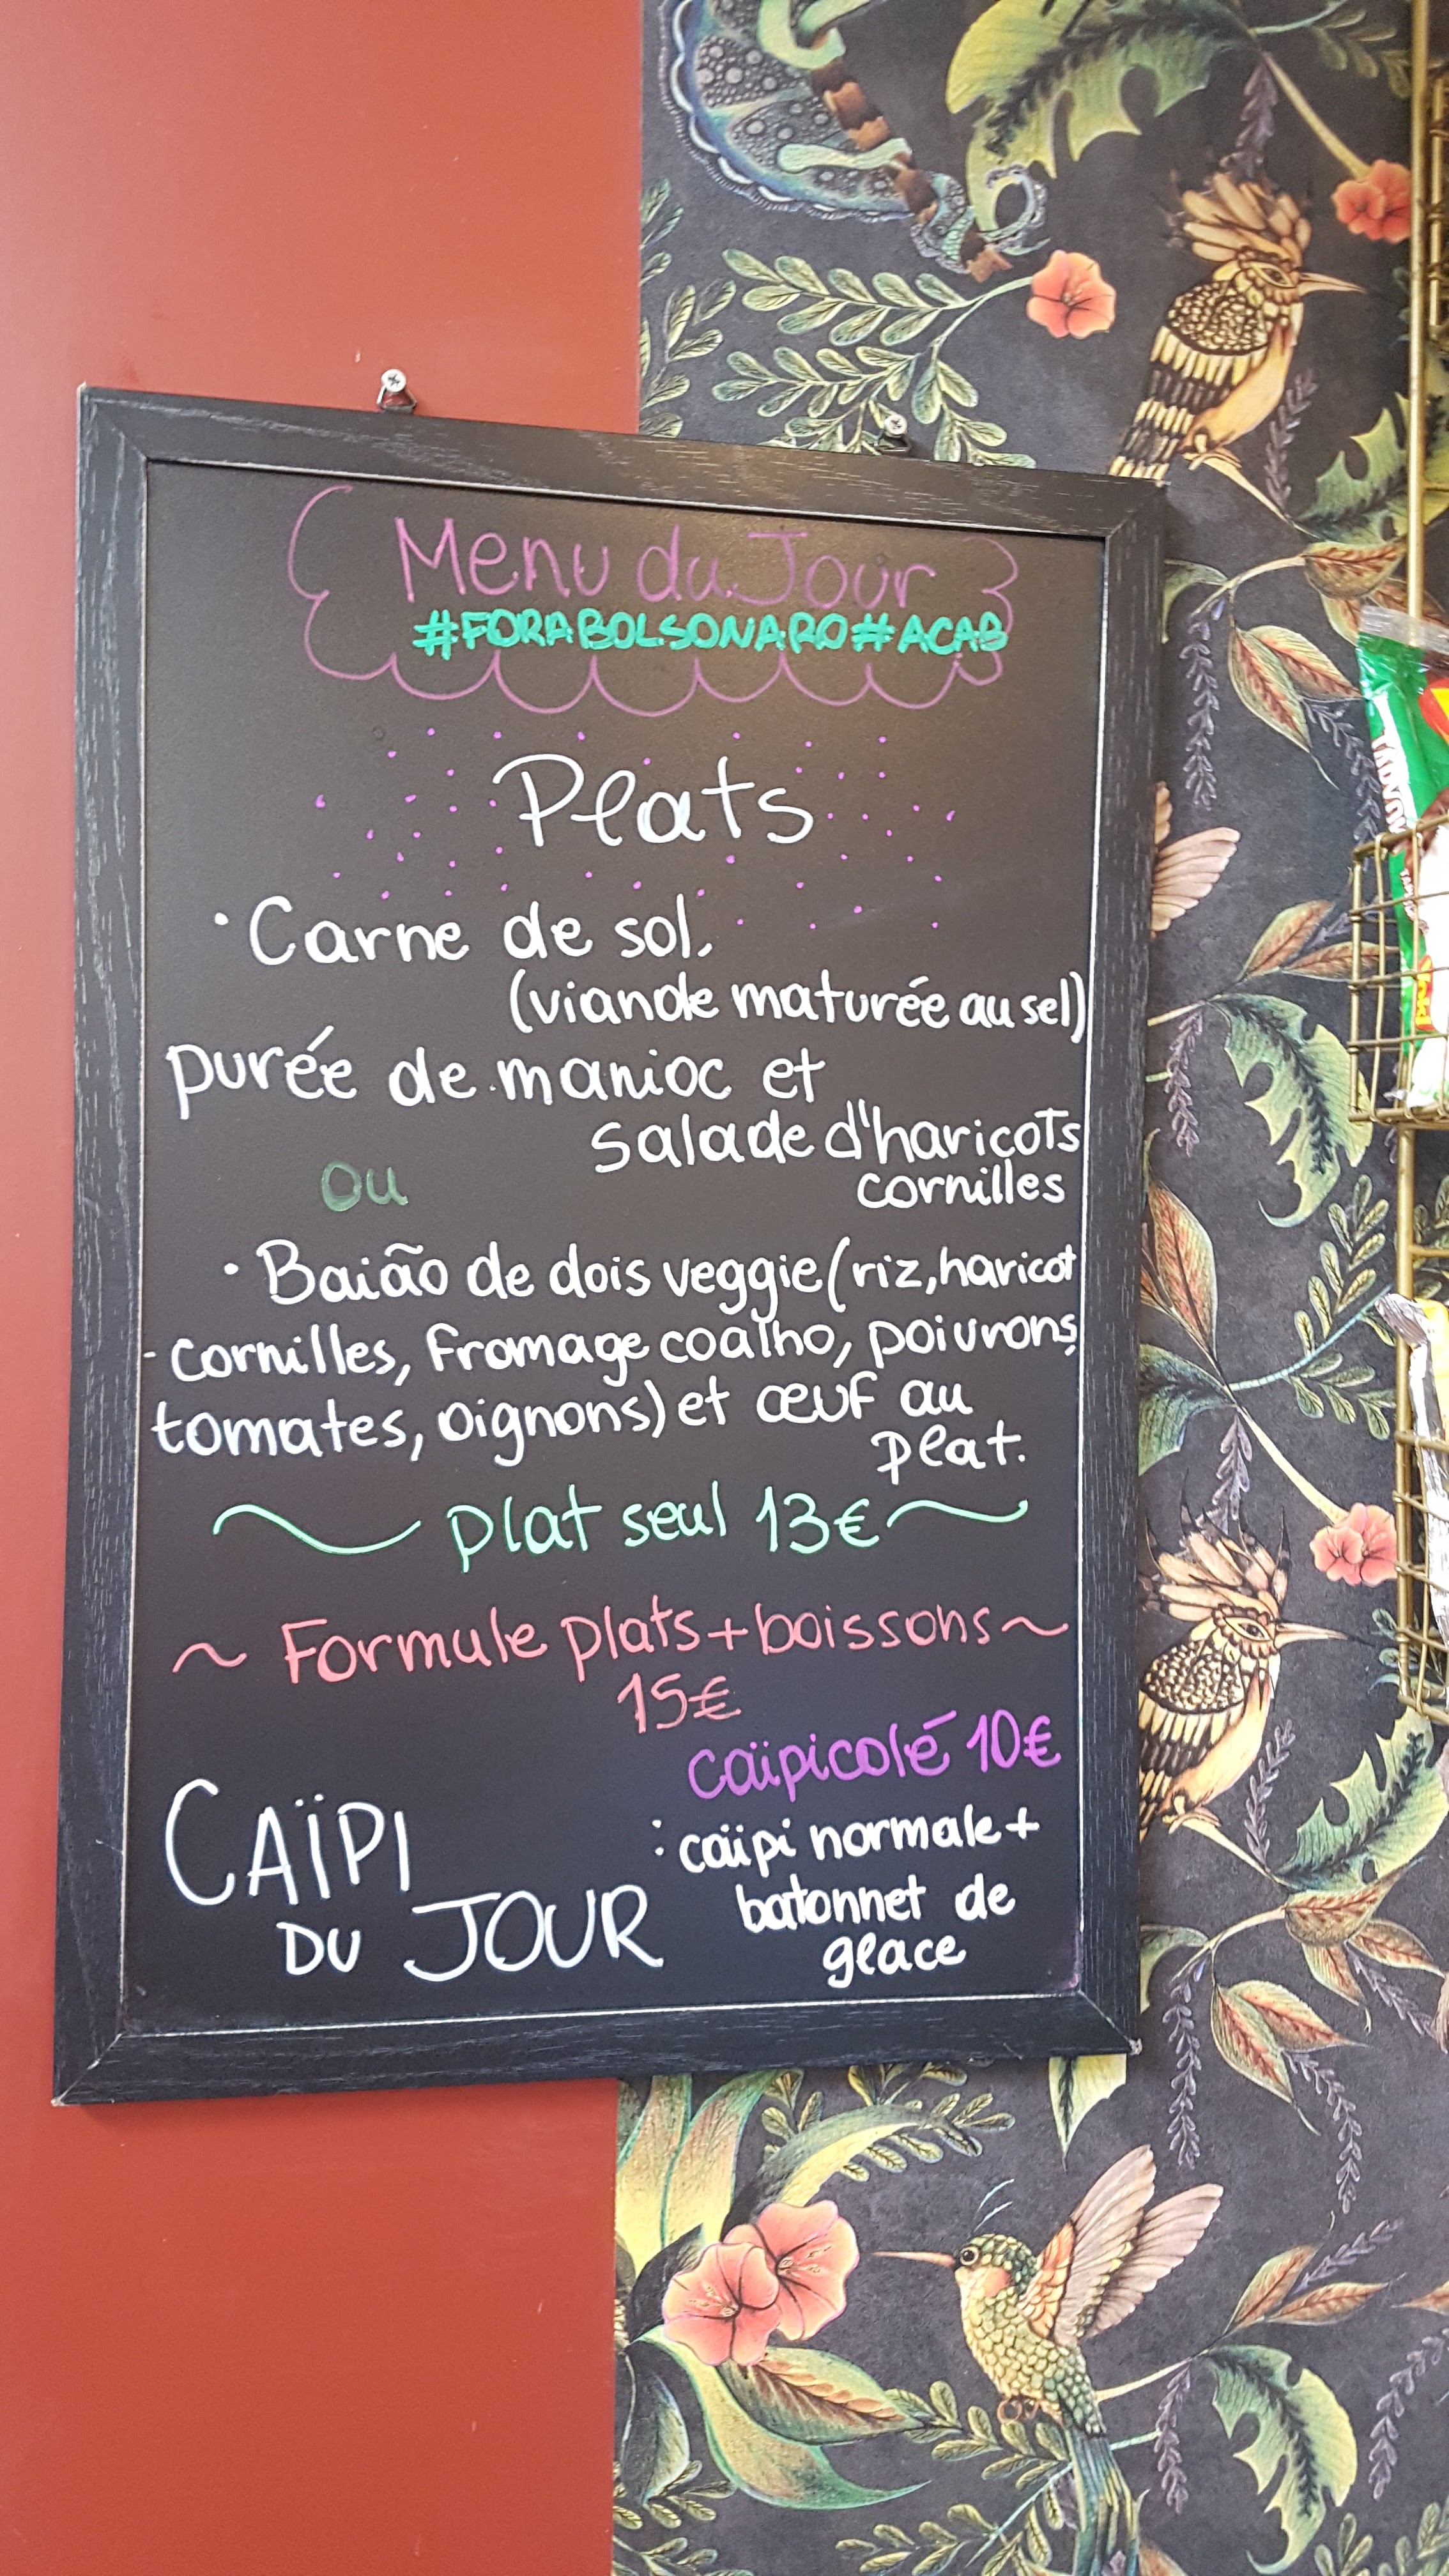 Menu du Jour
#FORABOLSONARO#ACAB
Plats
• Carne de sol,
(viande maturée au sel)
purée de manioc et
salade d'haricots
cornilles
ou
• Baião de dois veggie (riz, haricot
- cornilles, fromage coalho, poivrons,
tomates, oignons) et œuf au
plat.
~ plat seul 13€ ~
~ Formule plats + boissons ~
15€
CAÏPI
DU JOUR
caïpicolé 10€
: caïpi normale +
batonnet de
glace